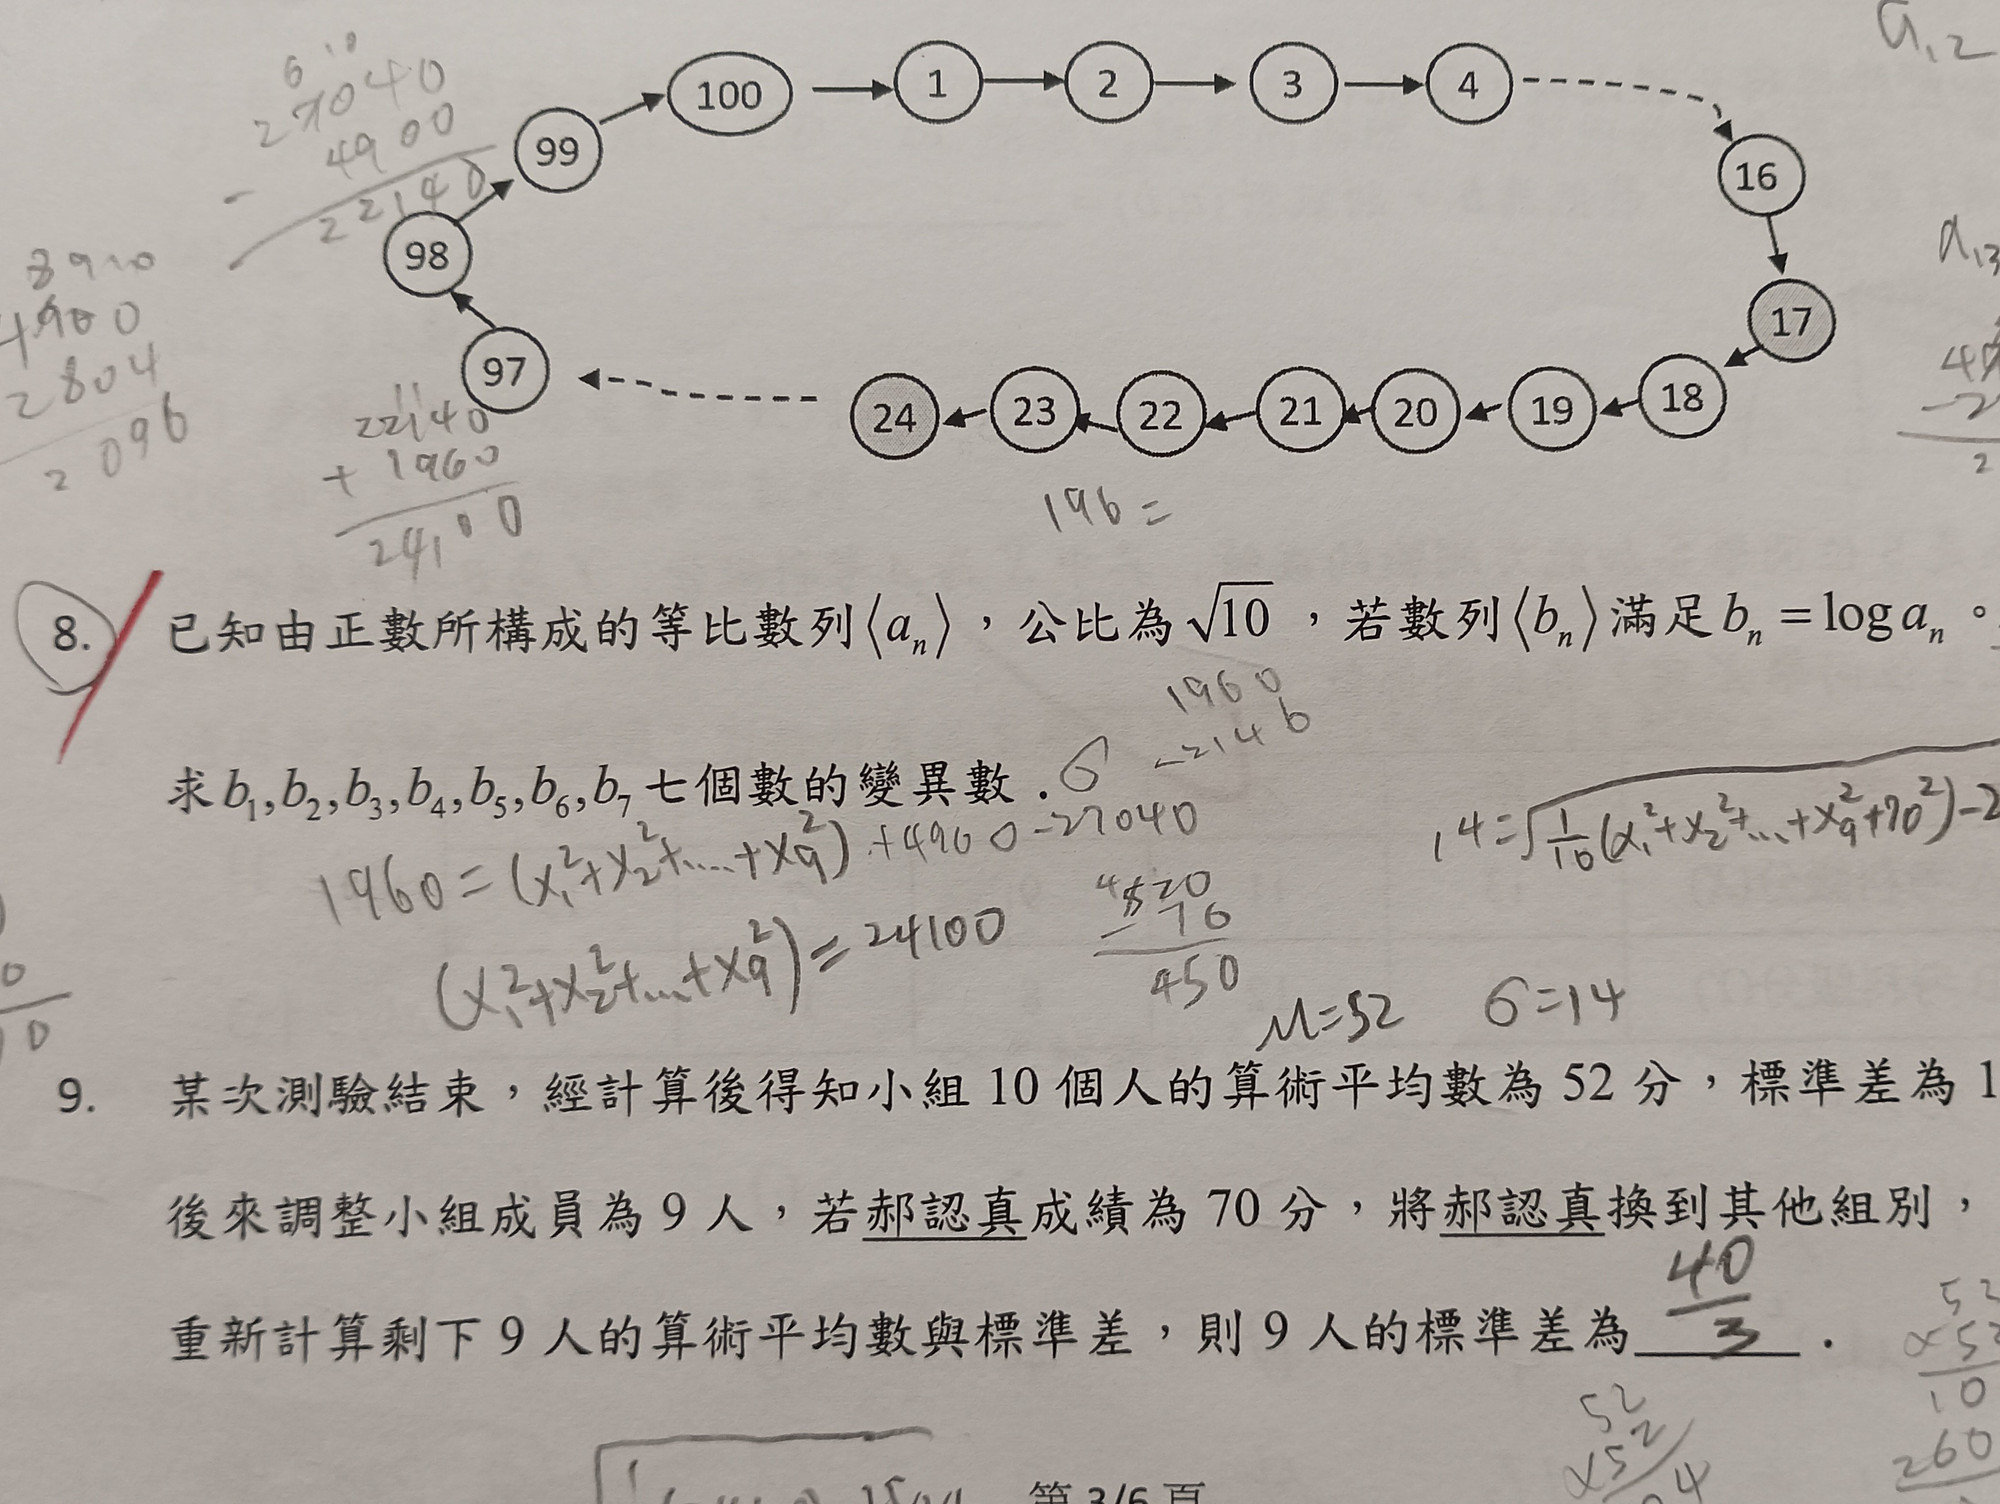 a₁₂
6 10
27040
- 4900
22140
100 1 2 3 4
99
16
98
a₁₃
8910
4900
2804
2096
17
97
24 23 22 21 20 19 18
22140
+ 1960
24100
196=
8. 已知由正數所構成的等比數列⟨aₙ⟩，公比為√10，若數列⟨bₙ⟩滿足bₙ=log aₙ。
1960
求b₁,b₂,b₃,b₄,b₅,b₆,b₇七個數的變異數.
1960=(x₁²+x₂²+...+x₉²)+4900-27040
14=√(1/10(x₁²+x₂²+...+x₉²+70²)-2
(x₁²+x₂²+...+x₉²)=24100
450
μ=52 σ=14
9. 某次測驗結束，經計算後得知小組 10 個人的算術平均數為 52 分，標準差為 1
後來調整小組成員為 9 人，若郝認真成績為 70 分，將郝認真換到其他組別，
重新計算剩下 9 人的算術平均數與標準差，則 9 人的標準差為 40/3 .
52
×52
10
260
52
×52
第 3/6 頁